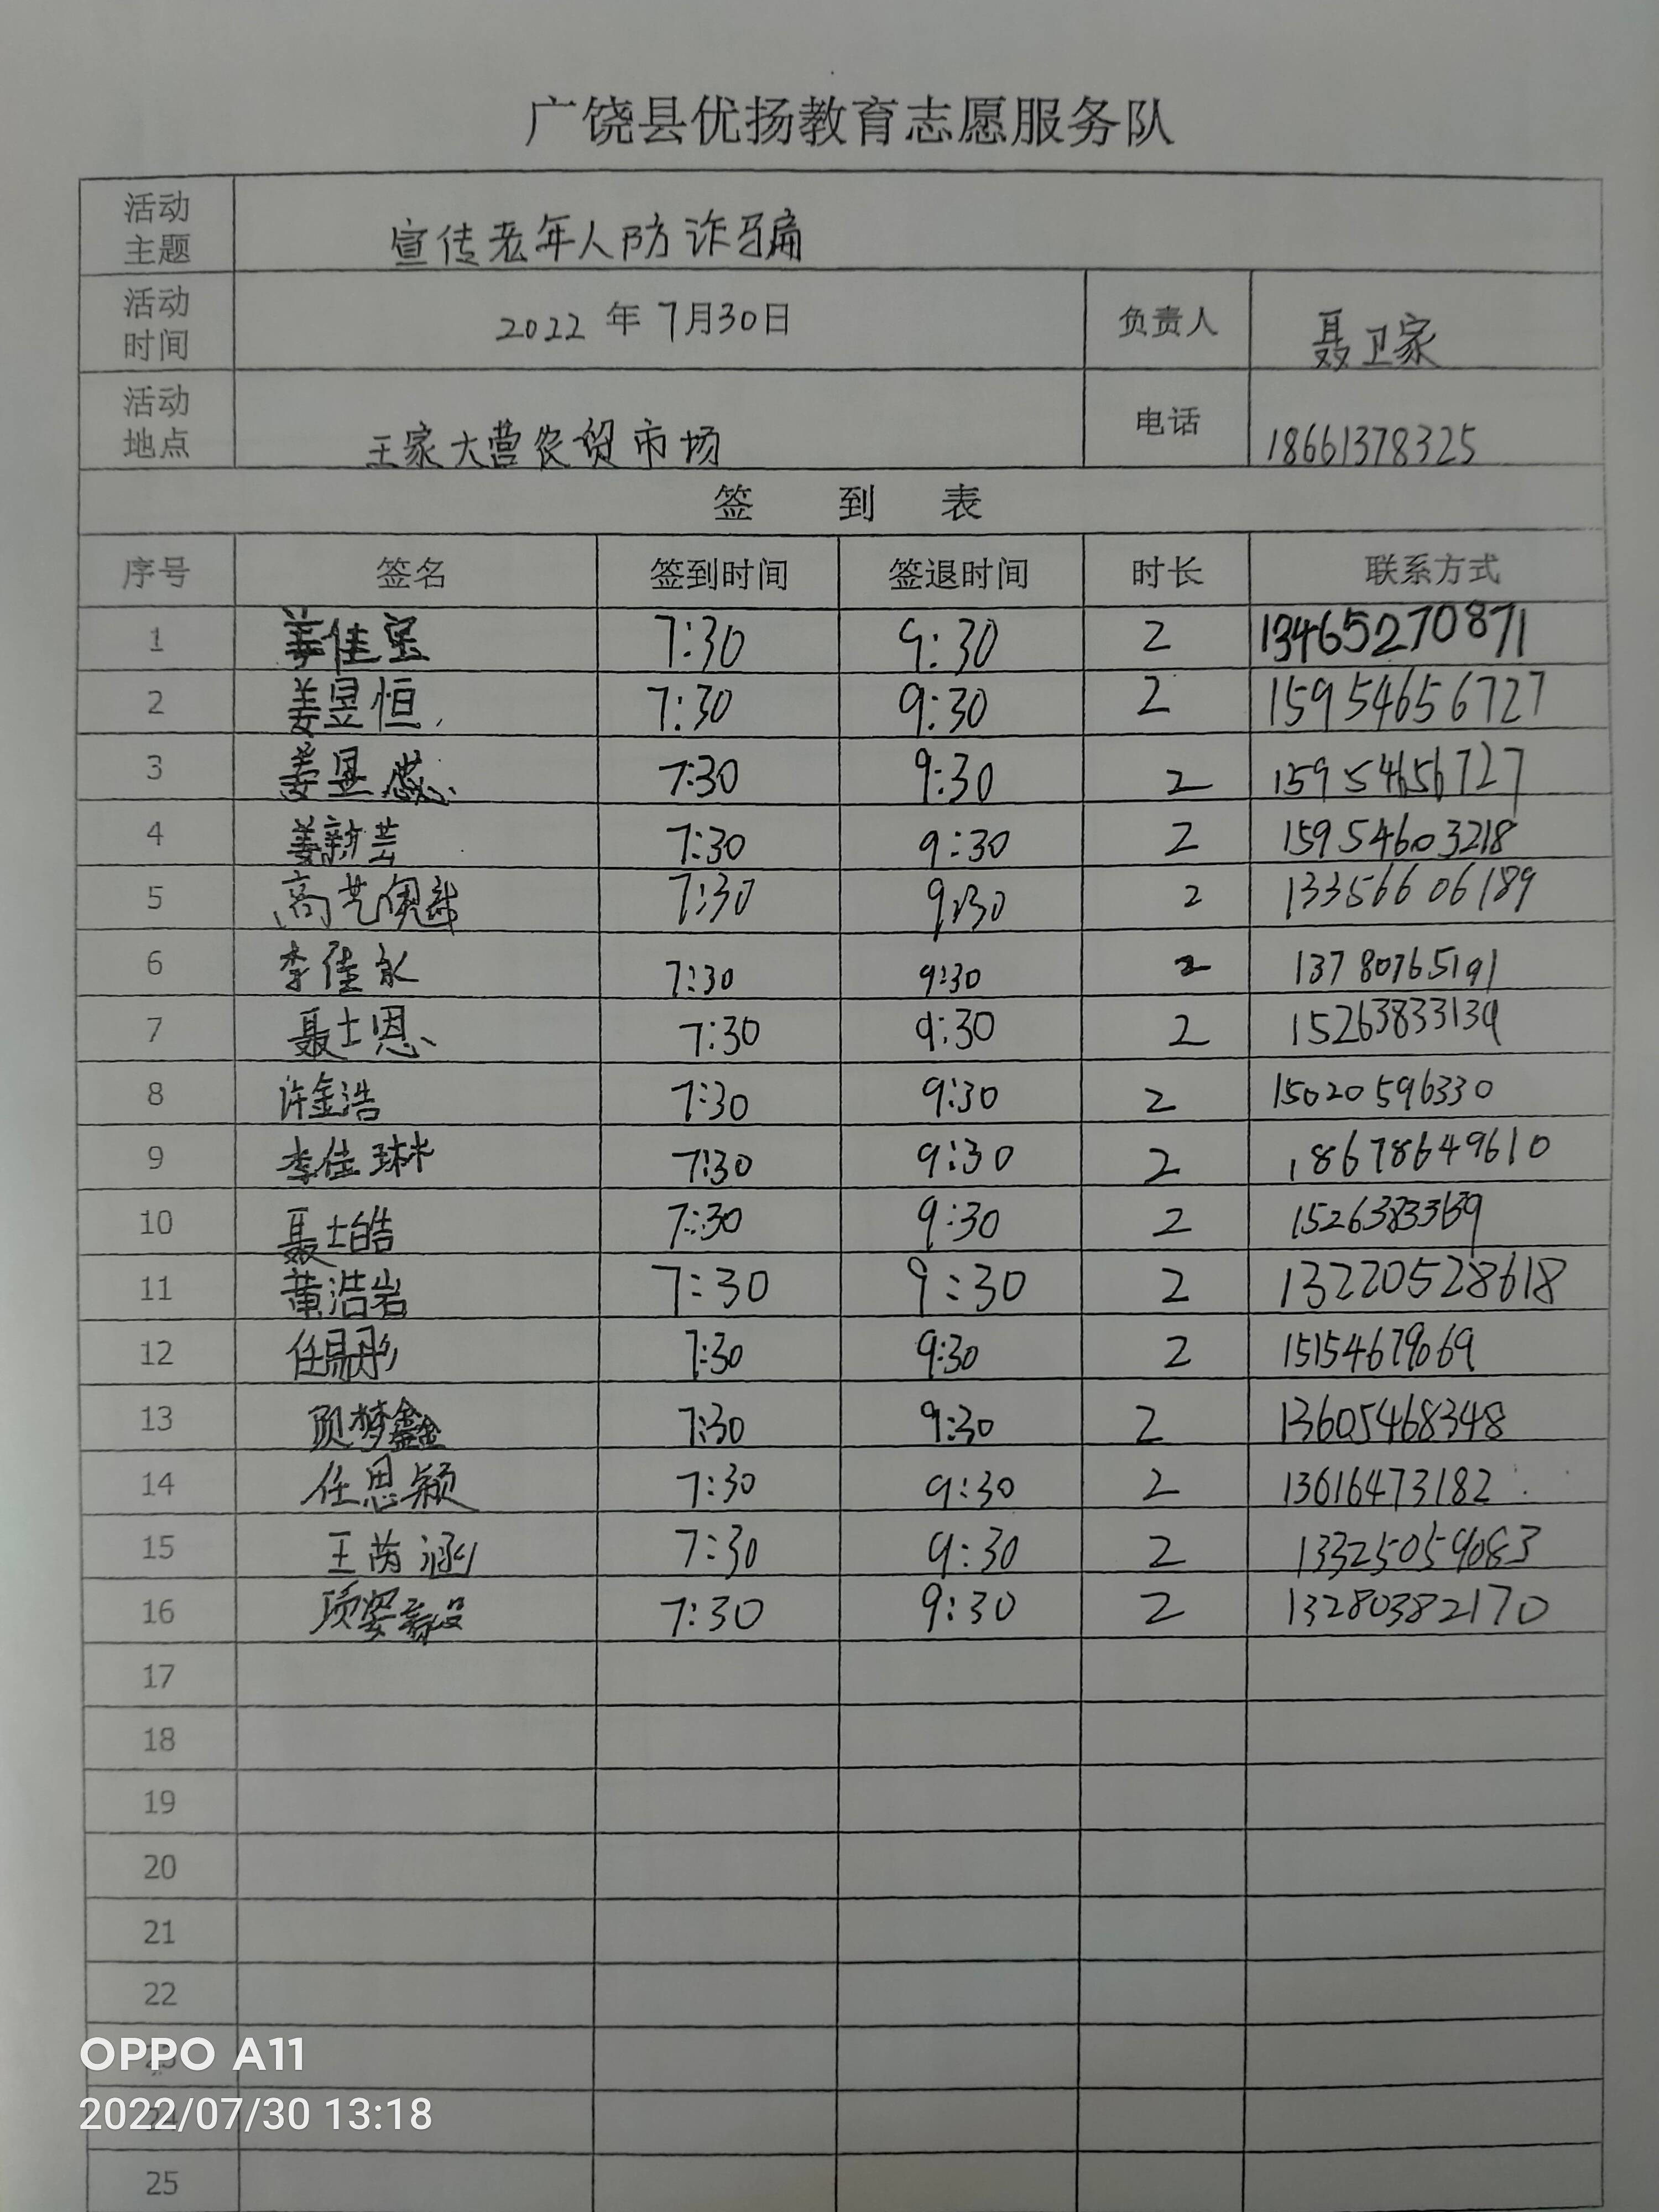 广饶县优扬教育志愿服务队
活动主题 宣传老年人防诈骗
活动时间 2022年7月30日 负责人 聂卫家
活动地点 王家大营农贸市场 电话 18661378325
签到表
序号 签名 签到时间 签退时间 时长 联系方式
1 姜佳宝 7:30 9:30 2 13465270871
2 姜昱恒 7:30 9:30 2 15954656727
3 姜昱蕊 7:30 9:30 2 15954656727
4 姜新芸 7:30 9:30 2 15954603218
5 高艺 7:30 9:30 2 13356606189
6 李佳永 7:30 9:30 2 13780765191
7 聂士恩 7:30 9:30 2 15263833139
8 许金浩 7:30 9:30 2 15020596330
9 李佳琳 7:30 9:30 2 18678649610
10 聂士皓 7:30 9:30 2
11 黄浩岩 7:30 9:30 2 13220528618
12 任易彤 7:30 9:30 2 15154679069
13 梦鑫 7:30 9:30 2 13605468348
14 任思颖 7:30 9:30 2 13616473182
15 王芮涵 7:30 9:30 2 13325059083
16 7:30 9:30 2 13280382170
17
18
19
20
21
22
23
24
25
OPPO A11
2022/07/30 13:18